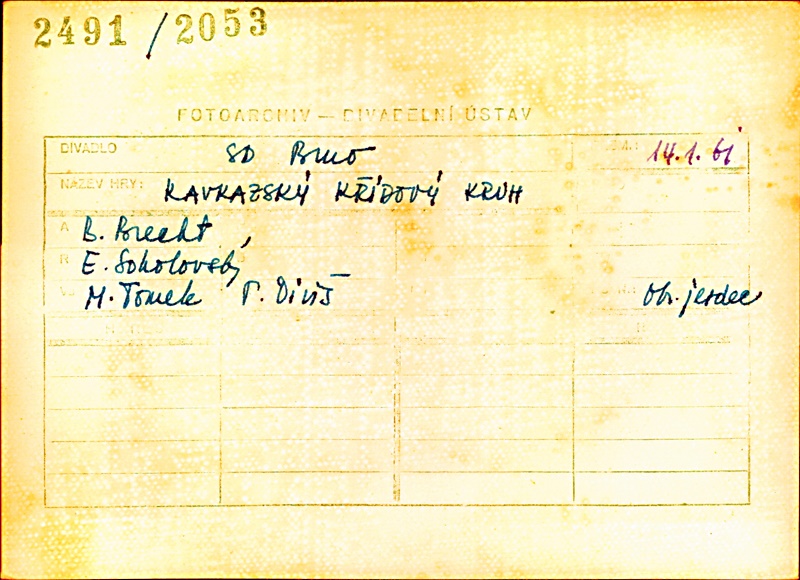 2491/2053
FOTOARCHIV — DIVADELNÍ ÚSTAV
DIVADLO SD Brno 14.1.61
NÁZEV HRY: KAVKAZSKÝ KŘÍDOVÝ KRUH
A B. Brecht,
R E. Sokolovský
M. Tomek P. Diviš